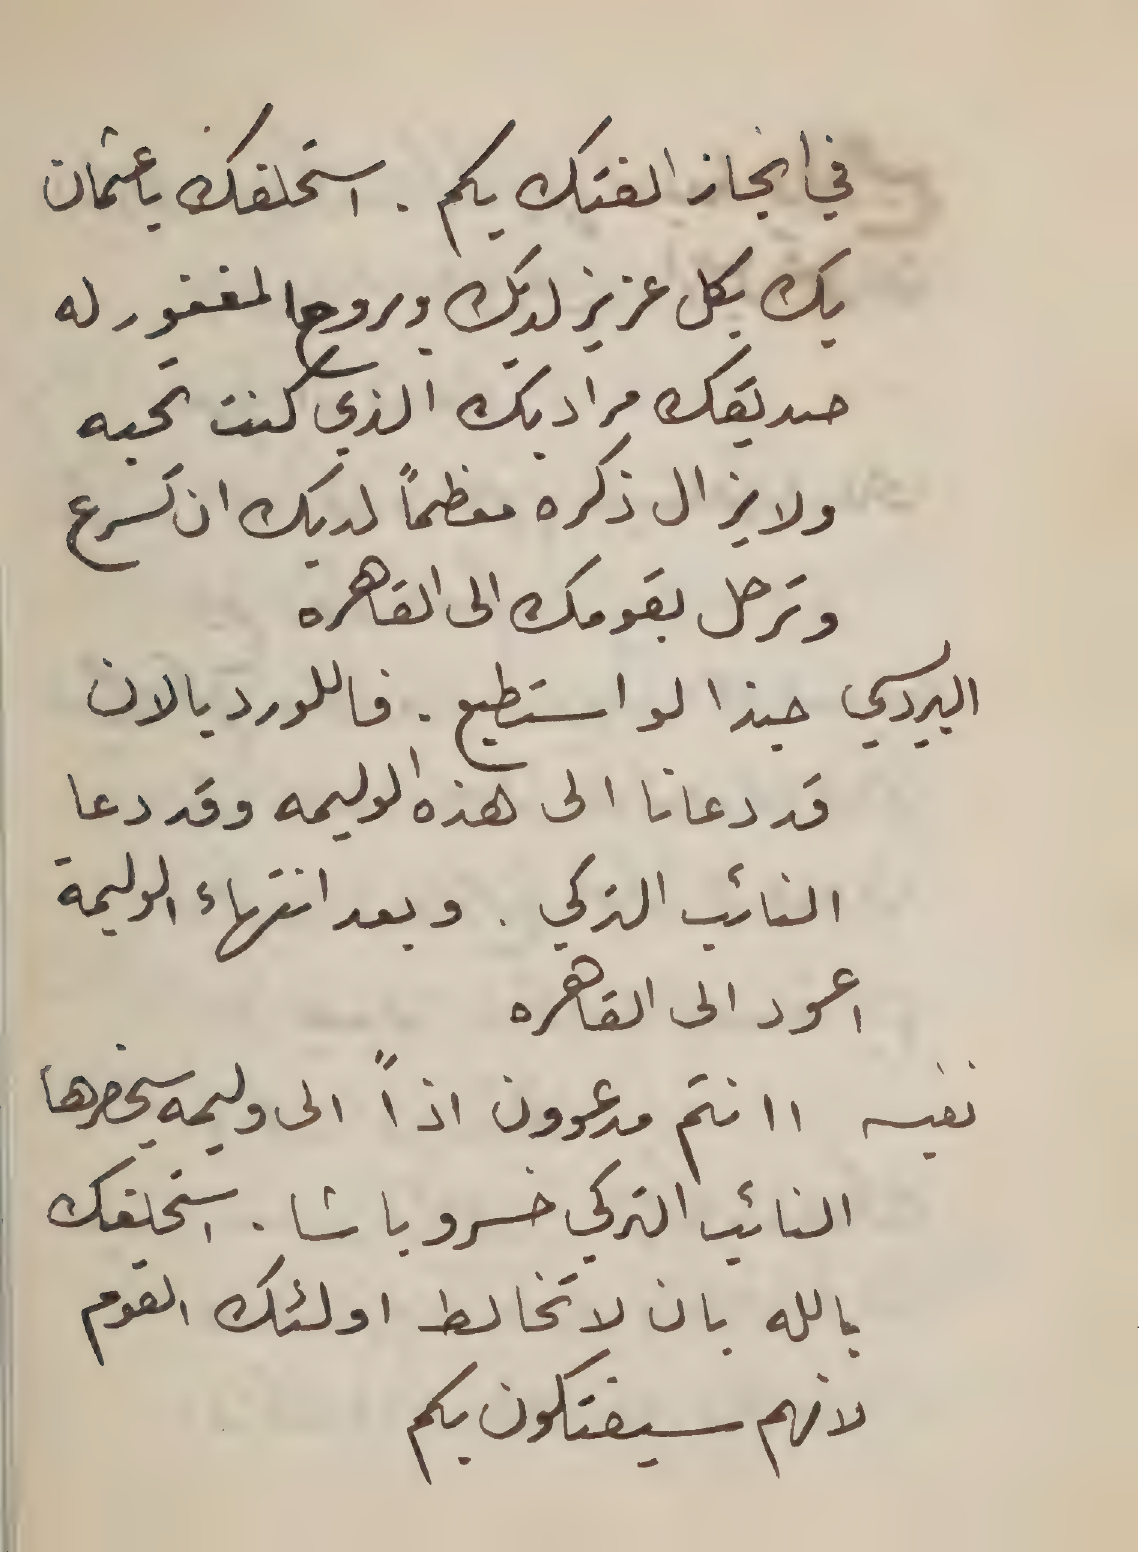 في انجاز الفتك بكم . استحلفك يا عثمان
بك بكل عزيز لديك وبروح المغفور له
صديقك مراد بك الذي كنت تحبه
ولا يزال ذكره معظماً لديك ان تسرع
وترحل بقومك الى القاهره
البرديسي حبذا لو استطيع . فاللورد يالان
قد دعانا الى هذه الوليمه وقد دعا
النائب التركي . وبعد انتهاء الوليمة
اعود الى القاهره
نفيسه اانتم مدعوون اذاً الى وليمه سيحضرها
النائب التركي خسرو باشا . استحلفك
بالله بان لا تخالط اولئك القوم
لانهم سيفتكون بكم